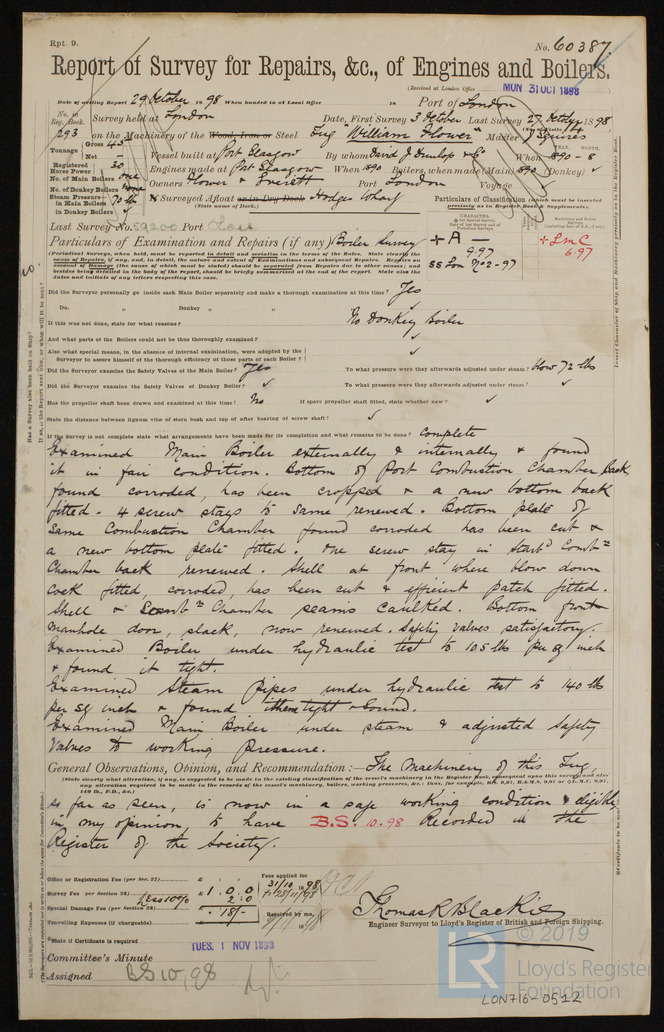 Rpt. 9.
No. 60387.
Report of Survey for Repairs, &c., of Engines and Boilers.
(Received at London Office MON 31 OCT 1898
Date of writing Report 29 October 1898 When handed in at Local Office 18 Port of London
No. in Reg. Book. Survey held at London Date, First Survey 3 October Last Survey 27 October 1898
293 on the Machinery of the Wood, Iron or Steel Tug "William Flower" Master J Squires
Tonnage Gross 45 Net -
Vessel built at Port Glasgow By whom David J Dunlop & Co When 1890 - 8
Registered Horse Power 30 Engines made at Port Glasgow When 1890 Boilers, when made (Main) 1890 (Donkey) ✓
No. of Main Boilers one Owners Flower & Everett Port London Voyage
No. of Donkey Boilers none
Steam Pressure in Main Boilers 70 lb Surveyed Afloat or in Dry Dock Hodges Wharf
in Donkey Boilers ✓ (State name of Dock.)
Particulars of Classification (which must be inserted precisely as in Register Book & Supplements.
Last Survey No. 59200 Port
Particulars of Examination and Repairs (if any) Boiler Survey
+ A 9.97 SS Lon No 2-97
+ LMC 6.97
(Periodical Surveys, when held, must be reported in detail and seriatim in the terms of the Rules.
Did the Surveyor personally go inside each Main Boiler separately and make a thorough examination at this time? Yes
Do. " Donkey " " ✓
If this was not done, state for what reasons? No Donkey Boiler
And what parts of the Boilers could not be thus thoroughly examined? ✓
Also what special means, in the absence of internal examination, were adopted by the Surveyor to assure himself of the thorough efficiency of those parts of each Boiler? ✓
Did the Surveyor examine the Safety Valves of the Main Boiler? Yes To what pressure were they afterwards adjusted under steam? blow 72 lbs
Did the Surveyor examine the Safety Valves of Donkey Boiler? ✓ To what pressure were they afterwards adjusted under steam? ✓
Has the propeller shaft been drawn and examined at this time? No If spare propeller shaft fitted, state whether new? ✓
State the distance between lignum vitæ of stern bush and top of after bearing of screw shaft? ✓
If the Survey is not complete state what arrangements have been made for its completion and what remains to be done? Complete
Examined Main Boiler externally & internally & found
it in fair condition. Bottom of Port Combustion Chamber back
found corroded, has been cropped & a new bottom back
fitted. 4 screw stays to same renewed. Bottom plate of
same Combustion Chamber found corroded has been cut &
a new bottom plate fitted. One screw stay in Starbd Combn
Chamber back renewed. Shell at front where blow down
cock fitted, corroded, has been cut & efficient patch fitted.
Shell & Combn Chamber seams caulked. Bottom front
manhole door, slack, now renewed. Safety valves satisfactory.
Examined Boiler under hydraulic test to 105 lbs per sq inch
& found it tight.
Examined steam pipes under hydraulic test to 140 lbs
per sq inch & found them tight & sound.
Examined Main Boiler under steam & adjusted Safety
Valves to working pressure.
General Observations, Opinion, and Recommendation:— The Machinery of this Tug,
(State clearly what alteration, if any, is suggested to be made in the existing classification of the vessel's machinery in the Register Book, consequent upon this survey, and also
so far as seen, is now in a safe working condition & eligible
in my opinion to have B.S. 10.98 Recorded in the
Register of the Society.
Office or Registration Fee (per Sec. 27) £ : :
Survey Fee (per Section 28) £ 1 : 0 : 0
Less 10% 2 : 0
Special Damage Fee (per Section 28) £ : 18/-
Travelling Expenses (if chargeable)
Fees applied for 31/10 1898
Received by me,
Thomas R Blackie
Engineer Surveyor to Lloyd's Register of British and Foreign Shipping.
State if Certificate is required
TUES. 1 NOV 1898
Committee's Minute
Assigned BS 10,98
© 2019
Lloyd's Register
Foundation
LON716-0512